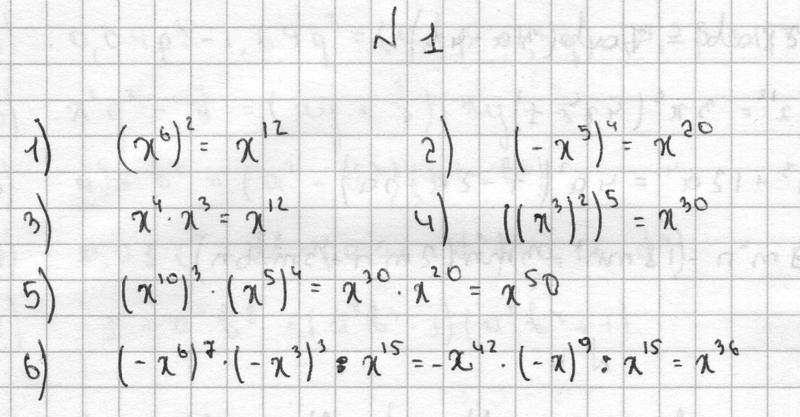 № 1
1) (x⁶)² = x¹² 2) (-x⁵)⁴ = x²⁰
3) x⁴ · x³ = x¹² 4) ((x³)²)⁵ = x³⁰
5) (x¹⁰)³ · (x⁵)⁴ = x³⁰ · x²⁰ = x⁵⁰
6) (-x⁶)⁷ · (-x³)³ : x¹⁵ = -x⁴² · (-x)⁹ : x¹⁵ = x³⁶